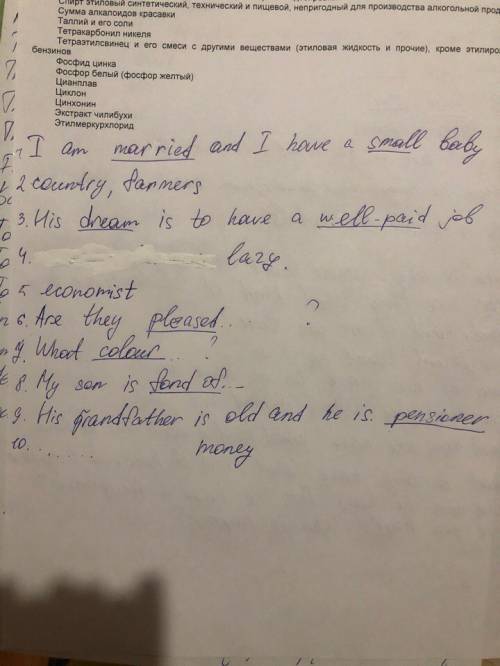 Спирт этиловый синтетический, технический и пищевой, непригодный для производства алкогольной прод
Сумма алкалоидов красавки
Таллий и его соли
Тетракарбонил никеля
Тетраэтилсвинец и его смеси с другими веществами (этиловая жидкость и прочие), кроме этилиро
бензинов
Фосфид цинка
Фосфор белый (фосфор желтый)
Цианплав
Циклон
Цинхонин
Экстракт чилибухи
Этилмеркурхлорид
1 I am married and I have a small baby
2 country, farmers
3. His dream is to have a well-paid job
4. lazy.
5 economist
6. Are they pleased.. ?
7. What colour...?
8. My son is fond of...
9. His grandfather is old and he is. pensioner
10. ...... money